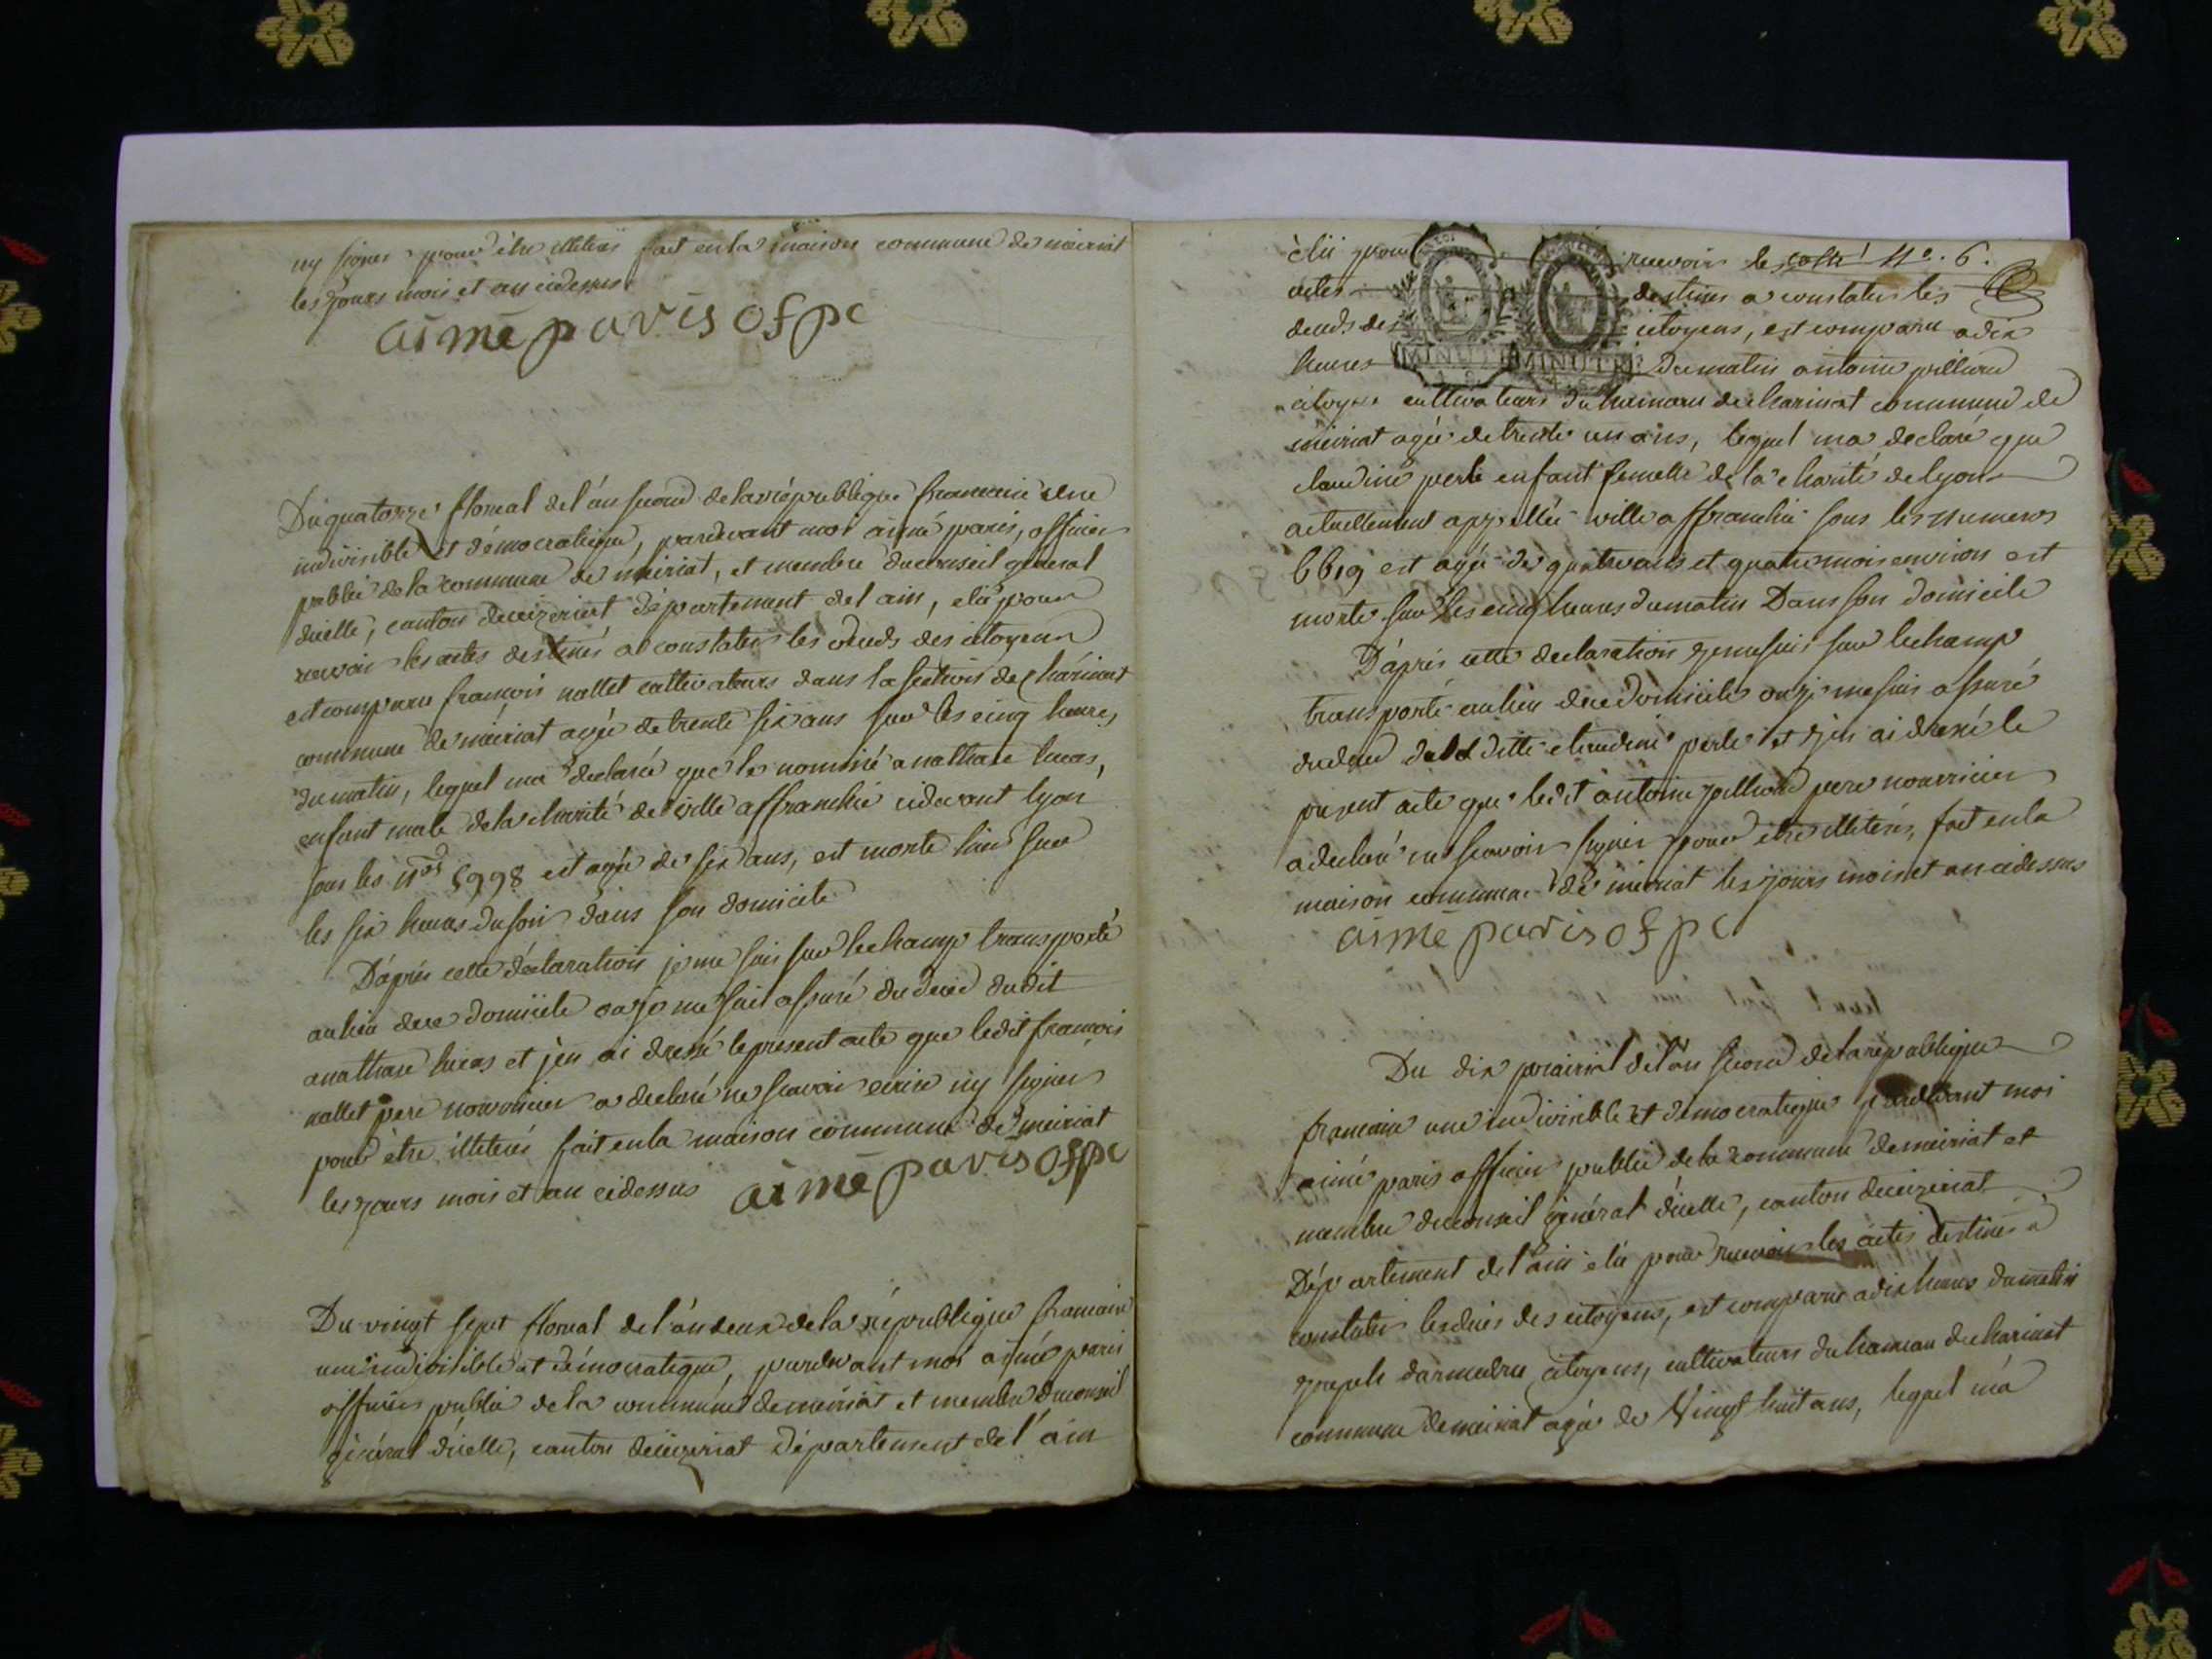 ny signer pour être illiteré fait en la maison commune de meiriat
les jours mois et an cidessus
aimé paris ofpc
Du quatorze floreal de l'an second de la républlique francaise une
indivisible et démocratique, pardevant moi aimé paris, officier
public de la commune de meiriat, et membre du conseil général
d'icelle, canton deceizeriat département de l'ain, élu pour
recevoir les actes destinés a constater les déceds des citoyens
est comparu françois nallet cultivateurs dans la section de charinat
commune de meiriat agée de trente six ans sur les cinq heures
du matin, lequel ma déclaré que le nommé anathase lucas,
enfant male de la charité de ville affranchie cidevant lyon
sous les nos 5998 est agée de six ans, est morte hier sur
les six heures du soir dans son domicile
D'aprés cette déclaration je me suis sur lechamp transporté
au lieu de ce domicile ou je me suis assuré du deced dudit
anathase lucas et j'en ai dressé le present acte que ledit françois
nallet pere nourricier a declaré ne scavoir ecrire ny signer
pour être illiterés fait en la maison commune de meiriat
les jours mois et an cidessus aimé paris ofpc
Du vingt sept floreal de l'an deux de la républlique francaise
une indivisible et démocratique, pardevant moi aimé paris
officier public de la commune de meiriat et membre du conseil
général d'icelle, canton deceizeriat département de l'ain
élü pour recevoir les cotté No. 6.
actes destines a constater les
deceds des citoyens, est comparu a dix
heures MINUTE MINUTE du matin antoine pilliard
citoyen cultivateurs du hameau de charinat commune de
meiriat agée de trente un ans, lequel ma declaré que
claudine perle enfant femelle de la charité de lyon
actuellement appellée ville affranchie sous les numeros
6619 est agée de quatre ans et quatre mois environ est
morte sur les cinq heures du matin Dans son domicile
D'après cette declaration je me suis sur lechamp
transporté au lieu de ce domicile ou je me suis assuré
du deced de la ditte claudine perle et j'en ai dressé le
present acte que ledit antoine pilliard pere nourricier
a declaré ne scavoir signer pour être illiterés, fait en la
maison commune de meiriat les jours mois et an cidessus
aimé paris ofpc
Du dix prairial de l'an second de la republlique
francaise une indivisible et democratique pardevant moi
aimé paris officier public de la commune de meiriat et
membre du conseil général d'icelle, canton deceizeriat
Département de l'ain élu pour recevoir les actes destinés a
constater les déces des citoyens, est comparu a dix heures du matin
joseph darmedru citoyens, cultivateurs du hameau de charinat
commune de meiriat agée de Vingt huit ans, lequel m'a